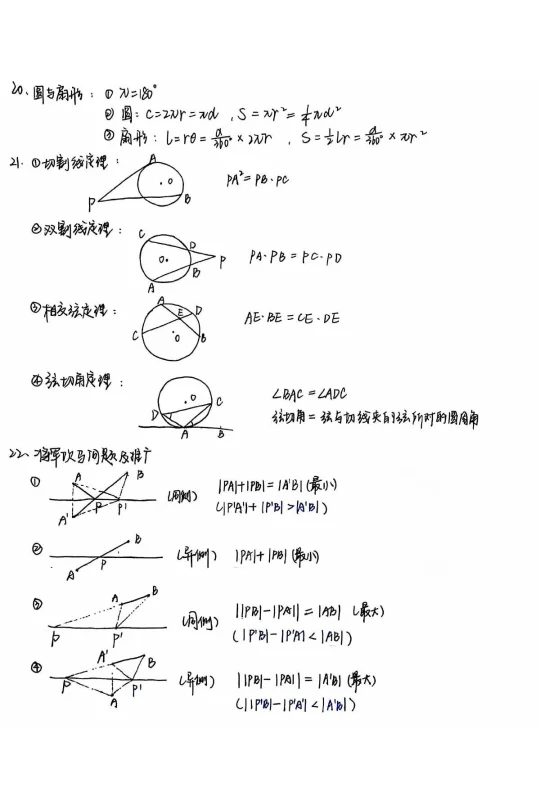 20、圆与扇形：① π=180°
② 圆：C=2πr=πd，S=πr²=¼πd²
③ 扇形：l=rθ=α/360°×2πr，S=½lr=α/360°×πr²
21、①切割线定理：
A
O
P
B
PA²=PB·PC
②双割线定理：
C
D
O
P
B
A
PA·PB=PC·PD
③相交弦定理：
A
D
E
C
O
B
AE·BE=CE·DE
④弦切角定理：
O
C
D
A
B
∠BAC=∠ADC
弦切角=弦与切线夹的弦所对的圆周角
22、将军饮马问题及推广
①
A
B
P
P'
A'
(同侧)
|PA|+|PB|=|A'B|(最小)
(|P'A'|+|P'B|>|A'B|)
②
B
P
A
(异侧)
|PA|+|PB|(最小)
③
A
B
P
P'
(同侧)
||PB|-|PA||=|AB| (最大)
(|P'B|-|P'A|<|AB|)
④
A'
B
P
P'
A
(异侧)
||PB|-|PA||=|A'B|(最大)
(||P'B|-|P'A'|<|A'B|)